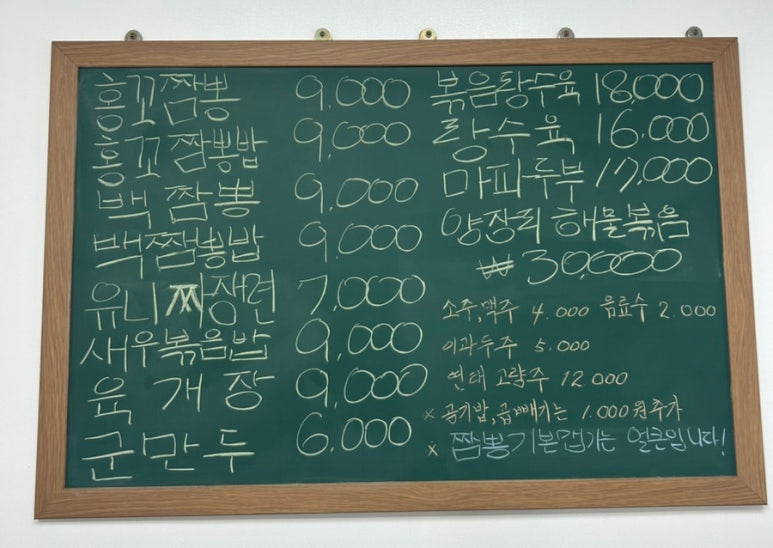 홍꼬짬뽕 9,000
홍꼬짬뽕밥 9,000
백짬뽕 9,000
백짬뽕밥 9,000
유니짜장면 7,000
새우볶음밥 9,000
육개장 9,000
군만두 6,000
볶음탕수육 18,000
탕수육 16,000
마파두부 17,000
양장피 해물볶음
₩30,000
소주,맥주 4.000 음료수 2.000
이과두주 5.000
연태 고량주 12 000
※ 공기밥,곱빼기는 1.000원추가
※ 짬뽕기본맵기는 얼큰입니다!